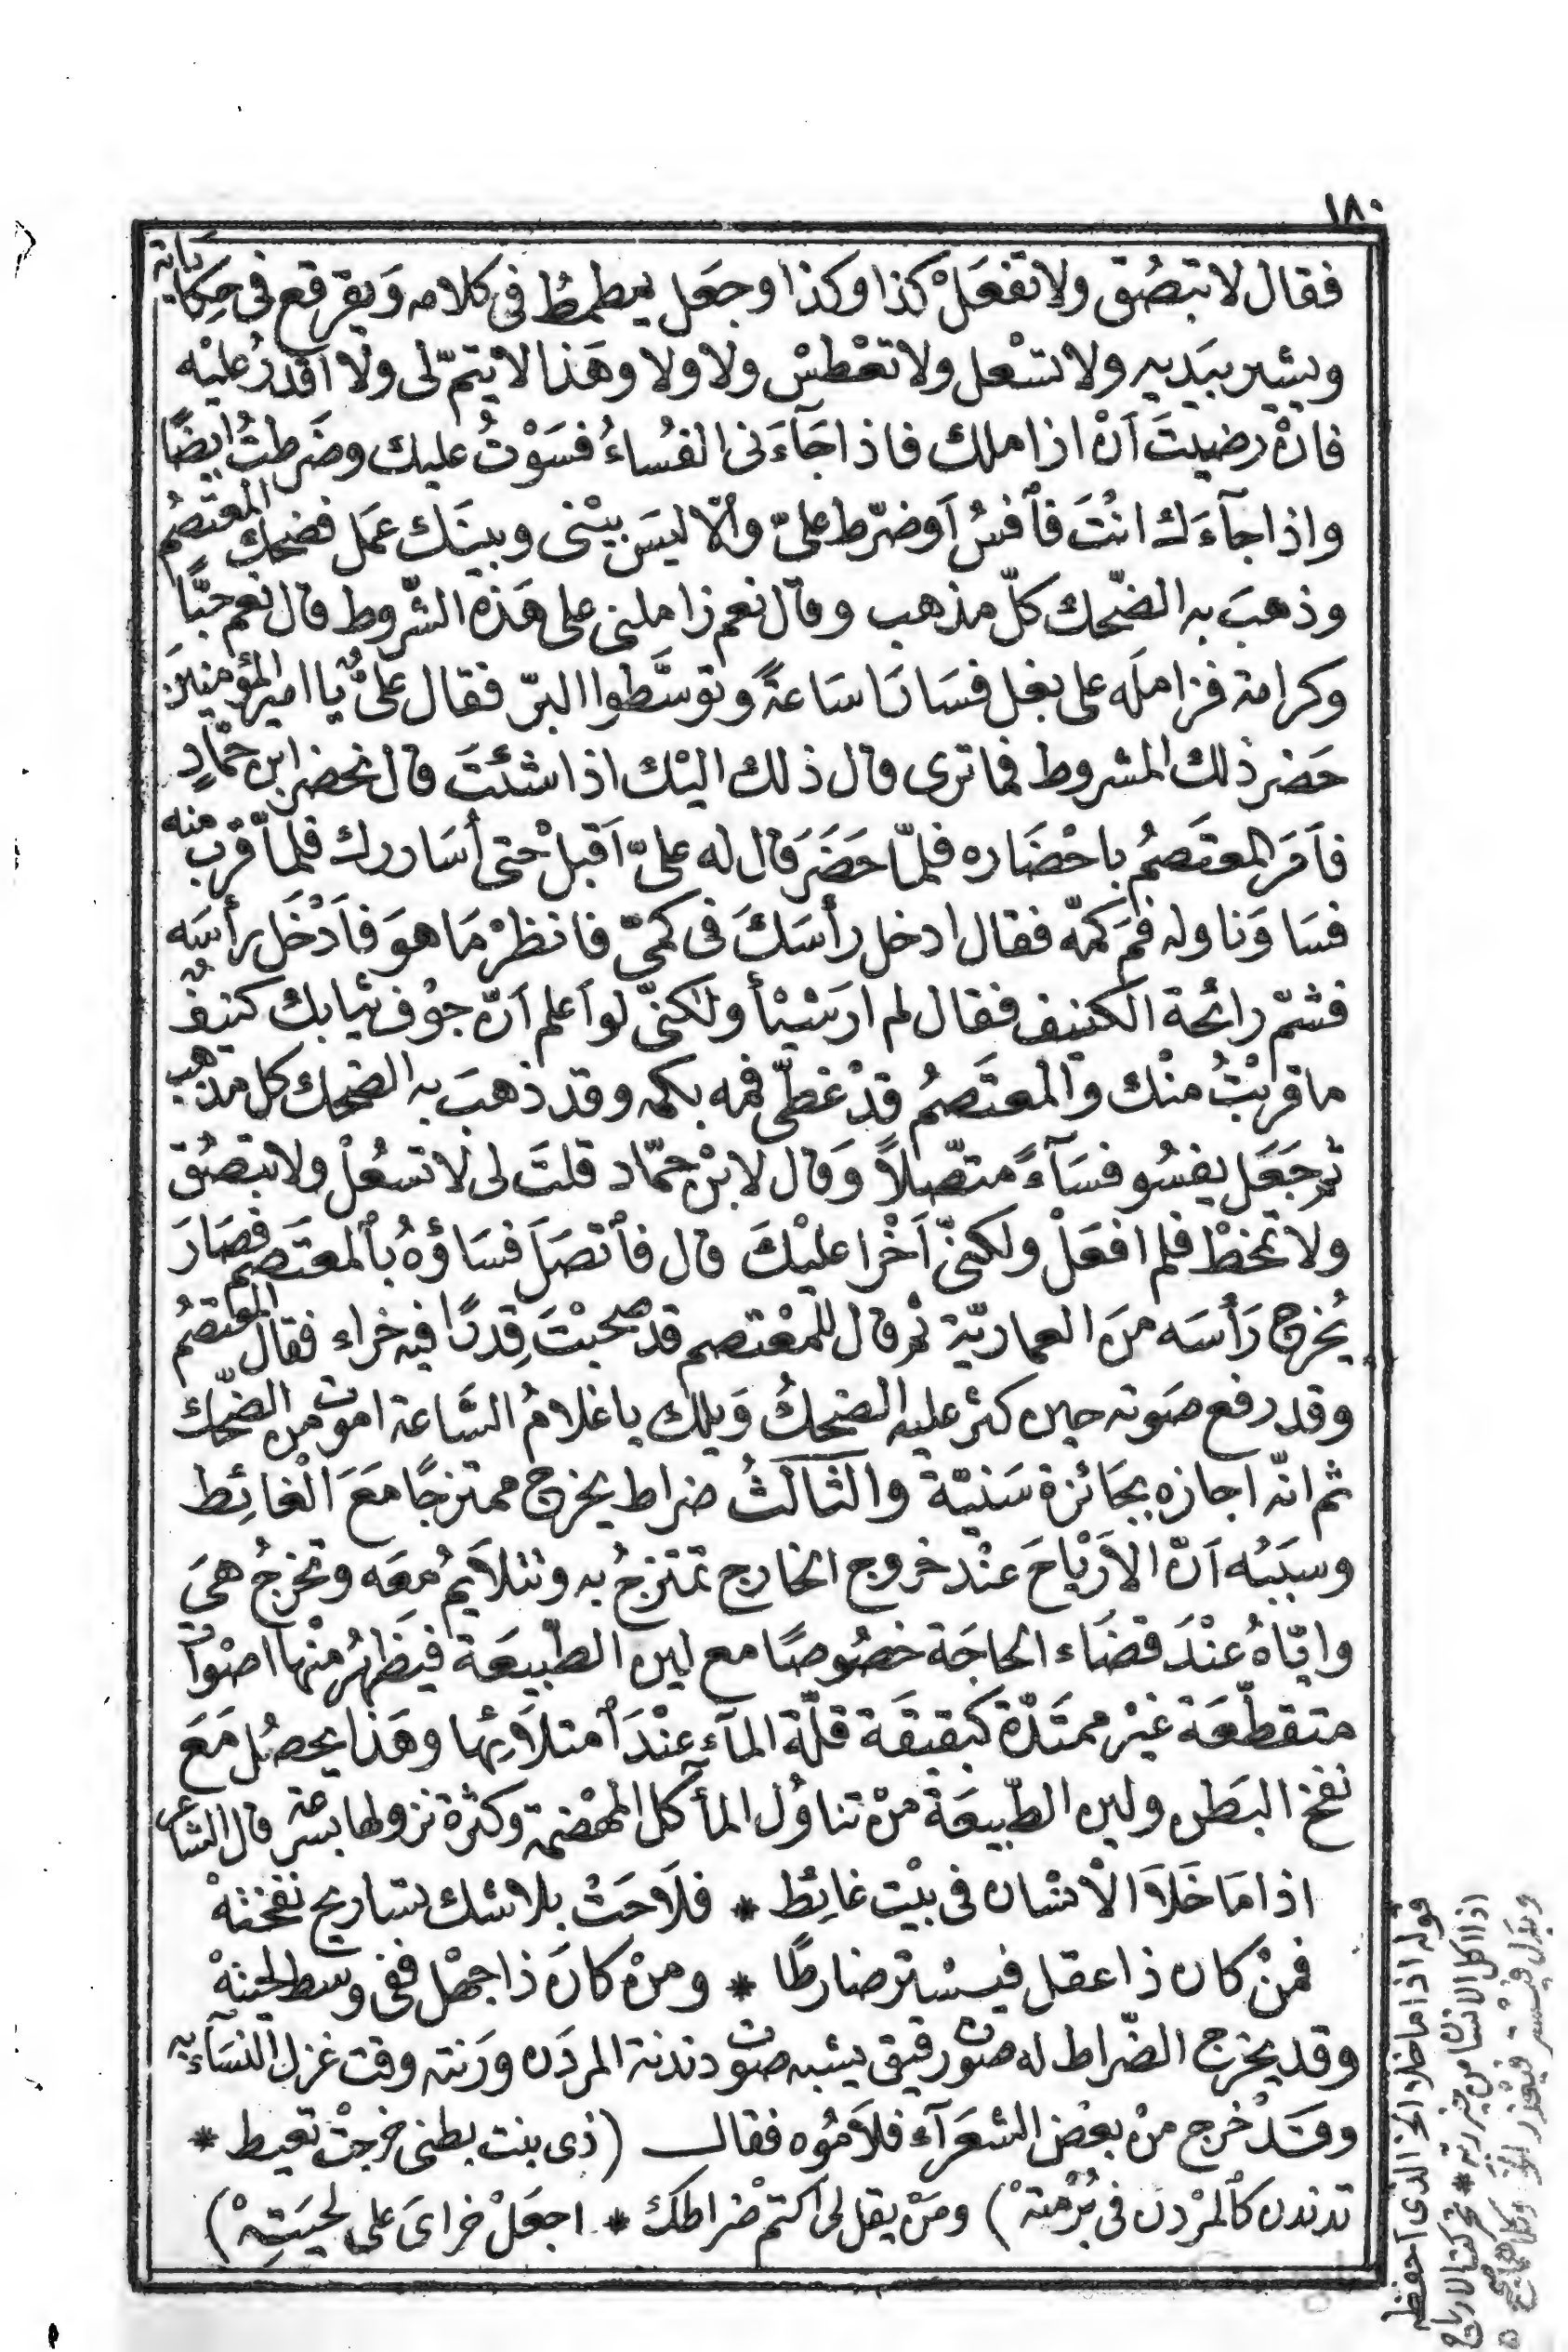 ١٨٠
فقال لا تبصُق ولا تفعَلْ كذا وكذا وجعَل يمطمطُ فى كلامه وَيقرقع فى حِكاياته
ويشير بيَديه ولا تسْعل ولا تعْطسْ ولا ولا وهَذا لا يتمّ لى ولا اقدرُ عليْه
فانْ رضيتَ اَنْ ازاملك فاذا جَآءَنى الفُساءُ فسَوْتُ عليك وضَرطتُ ايضًا
واذا جآءَك انْتَ فاَفسُ اَوضرّط علىّ والّا ليسَ بيْنى وبينَك عَمَل فضحك المعْتصمُ
وذهبَ به الضّحك كلّ مذهب وقال نعم زاملنى على هَذه الشّروط قال نعم حبًّا
وكرامة فزاملَه على بغل فسَارَا سَاعةً وتوسَّطوا البرّ فقال عَلىٌّ يا امير المؤمنينَ
حَضر ذلك المشروط فما ترى قال ذلك اليْك اذا شئتَ قال نحضر ابن حمّادٍ
فاَمَر المعتَصمُ باحْضَاره فلمّا حضَرَ قال له علىّ اَقبلْ حتى أسَاررك فلمّا قربَ منه
فسَا وَناوله فمَ كمّه فقال ادخل رأسَكَ فى كمىّ فانظرْ مَا هوَ فاَدْخَل رأسَه
فشمّ رائحة الكنيف فقال لم ارَ شيْئأ ولكنّى لو اَعلم اَنّ جوْف ثيابك كنيفٌ
ما قربْتُ منْك والمعتَصمُ قدْ غطّى فمه بكمه وقد ذهبَ به الضحك كل مذهب
ثم جَعَل يفسُو فسَآءً متصّلاً وَقال لابْن حمّاد قلتَ لى لا تسْعُلْ ولا تبصُق
ولا تمخطْ فلم افعَلْ ولكنّى اَخْرا عليْكَ قال فاَتصَلَ فسَاؤهُ باْلمعتَصم فصَارَ
يُخرج رَأسَه منَ العماريّة ثم قال للمعْتصم قد صحبْتَ قِدرًا فيه خراء فقال المعتصمُ
وقد رفع صَوته حين كثر عليه الضحكُ وَيلك يا غلامُ السَّاعة اموت من الضحّك
ثم انّه اجازه بجَائزة سَنيّة والثالثُ ضراط يخرج ممتزجًا مَعَ الْغائِط
وسبَبُه اَنّ الاَرْيَاحَ عنْد خروج الخارج تمتزجُ به وتتلاَيمُ معَه وتخرجُ هىَ
وايّاهُ عنْدَ قضَاء الحاجَة خصُوصًا مع لين الطّبيعَة فيَظهرُ منْها اصْواتٌ
متقطّعَة غيْر ممتَدّة كبقيقَة قلّة المآء عنْدَ اَمتلاَئِها وهَذا يحصُل مَعَ
نفخ البَطن ولين الطّبيعَة منْ تناوُل المأكل المهْضمة وكثرة نزولها بسرعة قال الشاعر
اذا مَا خَلاَ الاْنسْان فى بيْت غائِط * فلاَحَتْ بلا شك تساريح نفختهْ
فمنْ كان ذا عقل فيسْتر ضارطًا * ومنْ كانَ ذا جهْل ففى وسط لحيتهْ
وقد يخرج الضّراط له صوت رقيق يشبه صوت دندنة المردَن ورَنته وقت غزل النسَآء به
وقَدْ خرج منْ بعْض الشعَرآء فلاَمُوه فقال (ذى بنت بطنى خرجتْ تعيط *
تدندن كاْلمرْدن فى بُرْمتهْ) ومَنْ يقل لى اَكتم ضراطك * اجعَلْ خراىَ على لحيَتِهْ)
قوله اذا ما خلا الخ الذى احفظه
اذا اكل الانسان من خبز بيته * تحركت الارياح
وبدل فيستر فيعذر الخ